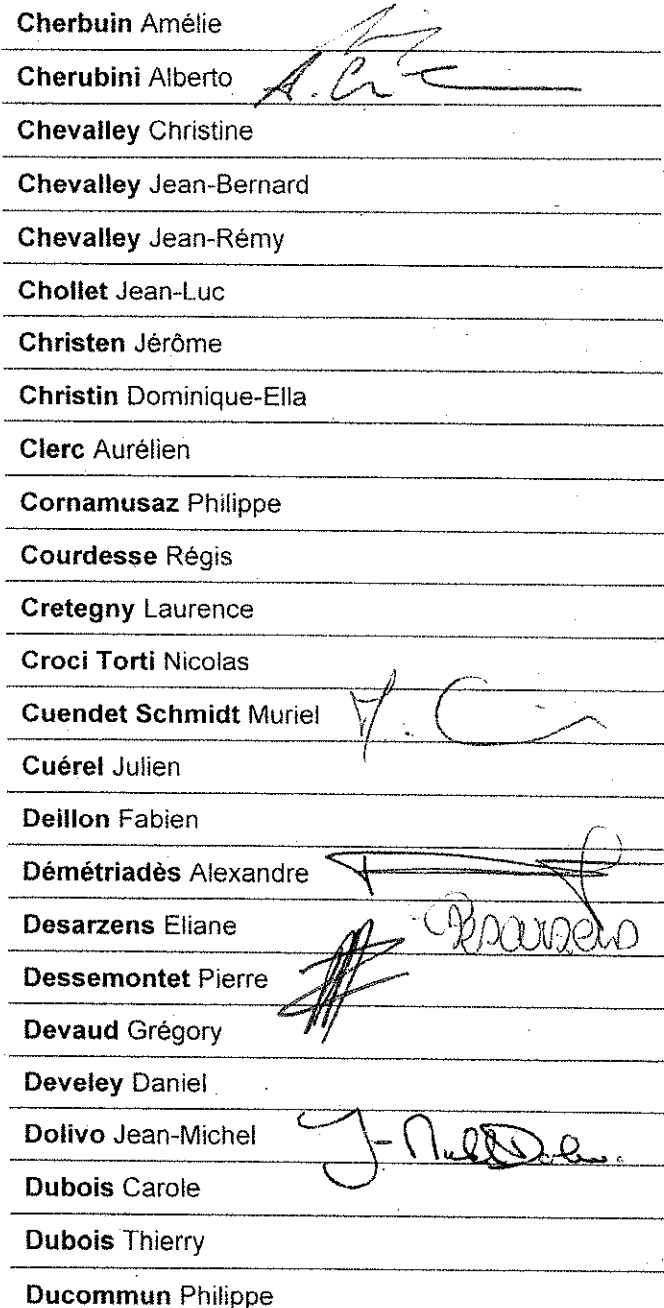 Cherbuin Amélie
Cherubini Alberto
Chevalley Christine
Chevalley Jean-Bernard
Chevalley Jean-Rémy
Chollet Jean-Luc
Christen Jérôme
Christin Dominique-Ella
Clerc Aurélien
Cornamusaz Philippe
Courdesse Régis
Cretegny Laurence
Croci Torti Nicolas
Cuendet Schmidt Muriel
Cuérel Julien
Deillon Fabien
Démétriadès Alexandre
Desarzens Eliane Desarzens
Dessemontet Pierre
Devaud Grégory
Develey Daniel
Dolivo Jean-Michel
Dubois Carole
Dubois Thierry
Ducommun Philippe